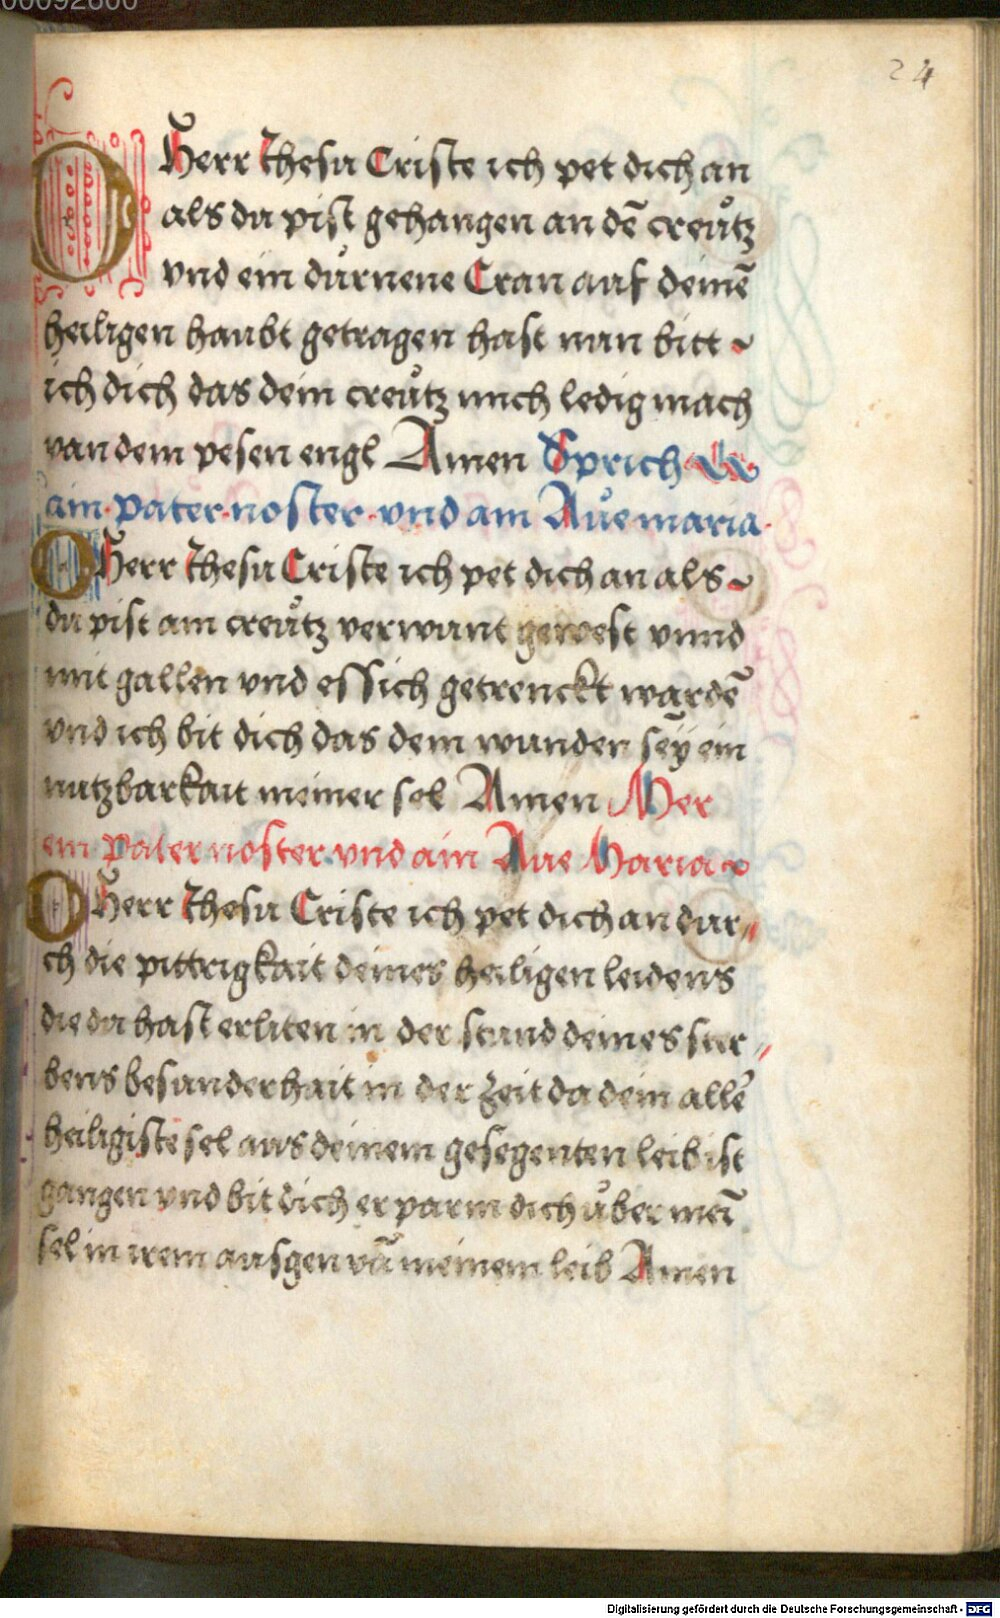 00092800
24
O Herr Jhesu Criste ich pet dich an
als du pist gehangen an dē creůtz
vnd ein dürnene Cran auf deinē
heiligen haubt getragen hast nun bitt
ich dich das dein creůtz mich ledig mach
van dem pesen engl Amen Sprich
ain pater noster vnd ain Aůe maria
O Herr Jhesu Criste ich pet dich an als
du pist am creůtz verwunt gewest vnnd
mit gallen vnd essich getrenckt wardē
vnd ich bit dich das dein wunden seÿ ein
nutzbarkait meiner sel Amen Mer
ein Pater noster vnd ain Aue Maria
O Herr Jhesu Criste ich pet dich an dur〃
ch die pittrigkait deines heiligen leidens
die du hast erliten in der stund deines stur〃
bens besunderhait in der zeit da dein alle
heiligiste sel aus deinem gesegenten leib ist
gangen vnd bit dich er parm dich über mei̅
sel in irem ausgen vā meinem leib Amen
Digitalisierung gefördert durch die Deutsche Forschungsgemeinschaft - DFG